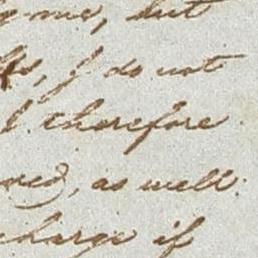 me, but
I do not
I therefore
as well
charge if